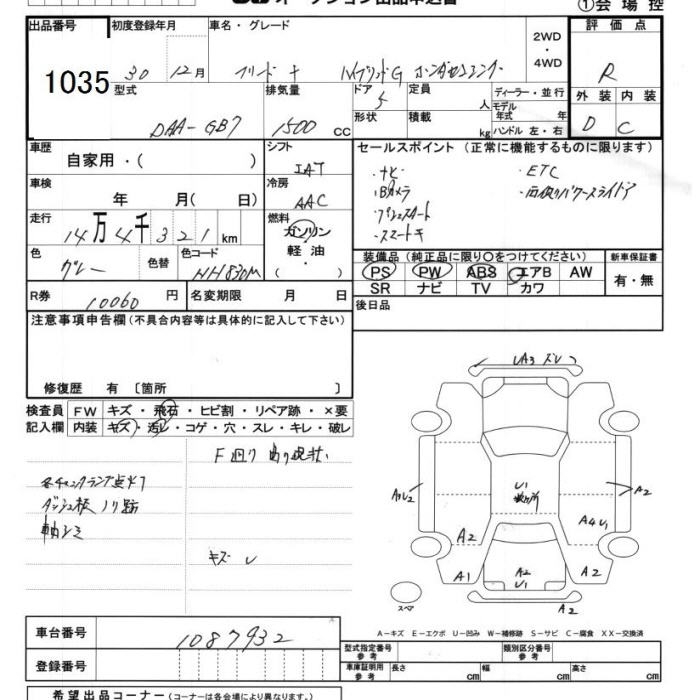 オークション出品申込書
①会場控
出品番号 初度登録年月 車名・グレード 2WD・4WD 評価点
1035 30 12月 フリード+ ハイブリッドG ホンダセンシング R
型式 排気量 ドア 定員 ディーラー・並行 外装 内装
DAA-GB7 1500 cc 5 人 モデル年式 年 D C
形状 積載 kg ハンドル 左・右
車歴 自家用・( ) シフト IAT セールスポイント(正常に機能するものに限ります)
車検 年 月( 日) 冷房 AAC
・ナビ ・ETC
・Bカメラ ・両側パワースライドドア
・プッシュスタート
・スマートキー
走行 14万4千321km 燃料 ガソリン・軽油・( )
色 グレー 色替 色コード NH830M
装備品(純正品に限り○をつけてください) 新車保証書
PS PW ABS エアB AW 有・無
SR ナビ TV カワ
R券 10060円 名変期限 月 日 後日品
注意事項申告欄(不具合内容等は具体的に記入して下さい)
修復歴 有〔箇所 〕
検査員 FW キズ・飛石・ヒビ割・リペア跡・×要
記入欄 内装 キズ・汚レ・コゲ・穴・スレ・キレ・破レ
F廻り
各チェックランプ点灯
ダッシュ板ノリ跡
キズ
UA3 ズレ
U1
A2
A2
A4U1
A2
A2
A1
A2
U1
A2
スペア
A-キズ E-エクボ U-凹み W-補修跡 S-サビ C-腐食 XX-交換済
車台番号 1087932
登録番号
型式指定番号参考 類別区分番号参考
車庫証明用参考 長さ cm 幅 cm 高さ cm
希望出品コーナー(コーナーは各会場により異なります。)